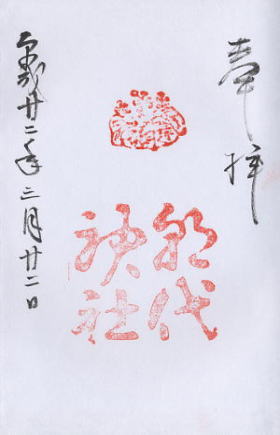 奉拝
代
神社
平成廿二年三月廿二日